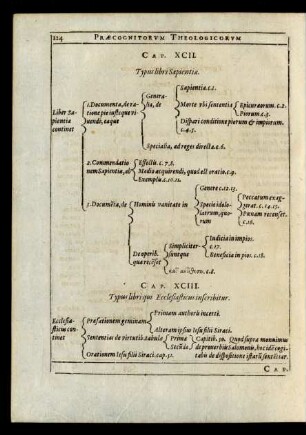 114 PRÆCOGNITORVM THEOLOGICORVM
CAP. XCII.
Typus libri Sapientiæ.
Liber Sapientia
continet
1. Documenta, de ratione
pie iusteque vivendi,
eaque
Generalia, de
Sapientia. c. 1.
Morte vbi sententia
Epicureorum. c. 2.
Piorum. c. 3.
Dispari conditione piorum & impiorum.
c. 4. 5.
Specialia, ad reges directa. c. 6.
2. Commendationem
Sapientiæ, ab
Effectu. c. 7. 8.
Media acquirendi, quod est oratio. c. 9.
Exemplis. c. 10. 11.
3. Documenta, de
Hominū vanitate in
Genere c. 12. 13.
Specie idololatrarum,
quorum
Peccatum exaggerat.
c. 14. 15.
Pœnam recenset.
c. 16.
Dei operib.
quæ recēset
Simpliciter
suntque
Iudicia in impios.
c. 17.
Beneficia in pios. c. 18.
CAP. XCIII.
Typus libri qui Ecclesiasticus inscribitur.
Ecclesiasticus
continet
Præfationem geminam
Primam authoris incerti.
Alteram ipsius Iesu filii Sirach.
Sententias de virtutib. tabulæ
Prima
Secūda
Orationem Iesu filii Sirach. cap. 51.
CAP.